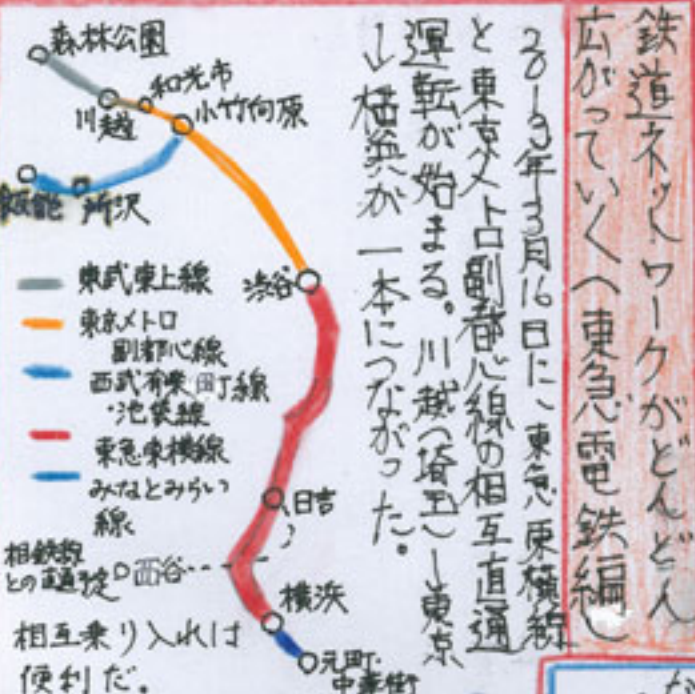 鉄道ネットワークがどんどん
広がっていく〜東急電鉄編〜
2013年3月16日に、東急東横線
と東京メトロ副都心線の相互直通
運転が始まる。川越(埼玉)→東京
→横浜が一本につながった。
森林公園
川越
和光市
小竹向原
飯能
所沢
渋谷
東武東上線
東京メトロ
副都心線
西武有楽町線
・池袋線
東急東横線
みなとみらい
線
日吉
相鉄線
との直通予定
西谷
横浜
元町・
中華街
相互乗り入れは
便利だ。